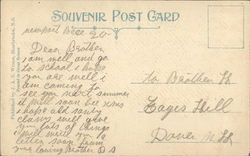 SOUVENIR POST CARD
newport Dec 20
Dear Brother
i am well and go
to school i hope
you are well i
am coming to
see you next summer
it will soon be xmas
i hope old santy
claus will give
you lots of things
i will write you a
letter soon from
your loving Brother
to Brother
Hill
Dover N.H.